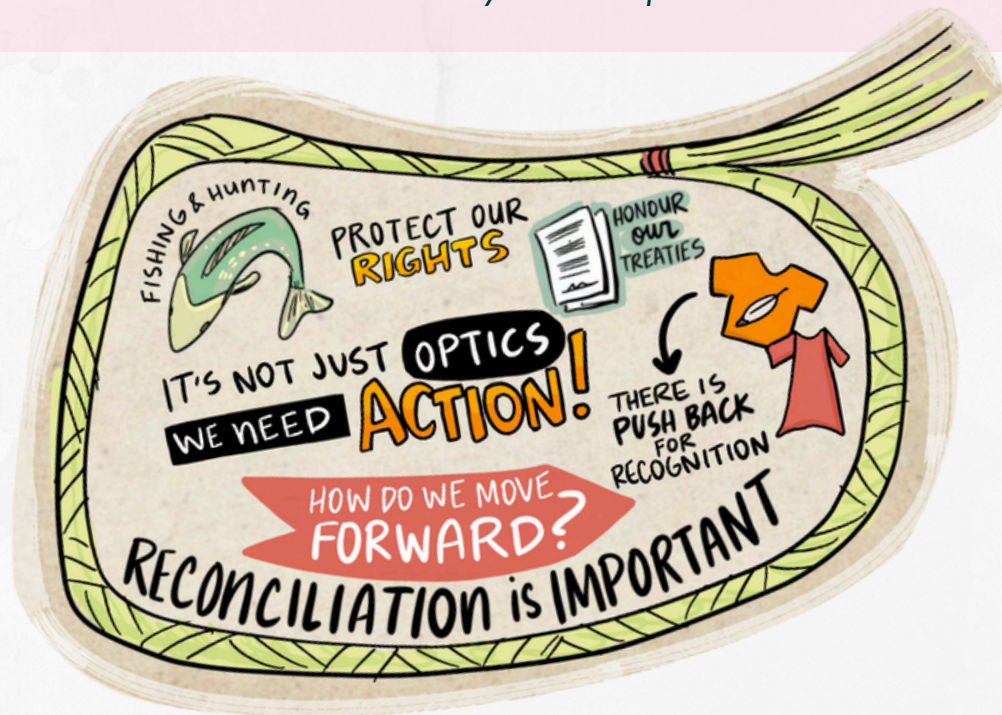 FISHING & HUNTING
PROTECT OUR
RIGHTS
HONOUR
OUR
TREATIES
IT'S NOT JUST OPTICS
WE NEED ACTION!
THERE IS
PUSH BACK
FOR
RECOGNITION
HOW DO WE MOVE
FORWARD?
RECONCILIATION is IMPORTANT